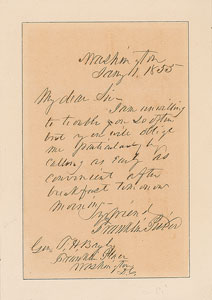 Washington
Jany 11, 1855
My dear Sir— I am unwilling
to trouble you so often
but you will oblige
me particularly by
calling as early as
convenient after
breakfast tomorrow
morning—
Yr friend
Franklin Pierce
Gen.
Washington